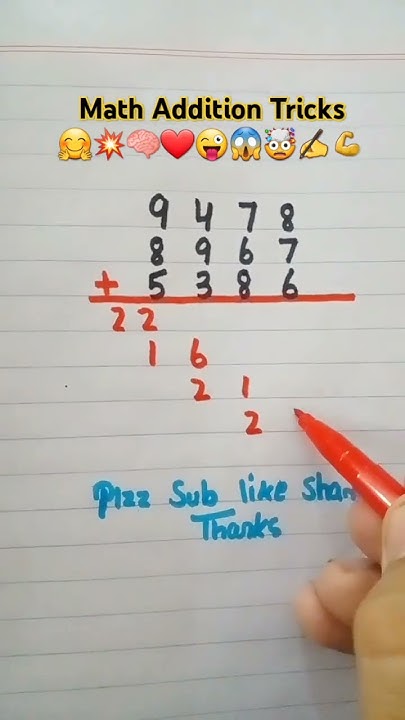 Math Addition Tricks
🤗💥🧠❤️😜😱🤯✍️💪
9 4 7 8
8 9 6 7
+ 5 3 8 6
2 2
1 6
2 1
2
Plzz Sub like Shar
Thanks